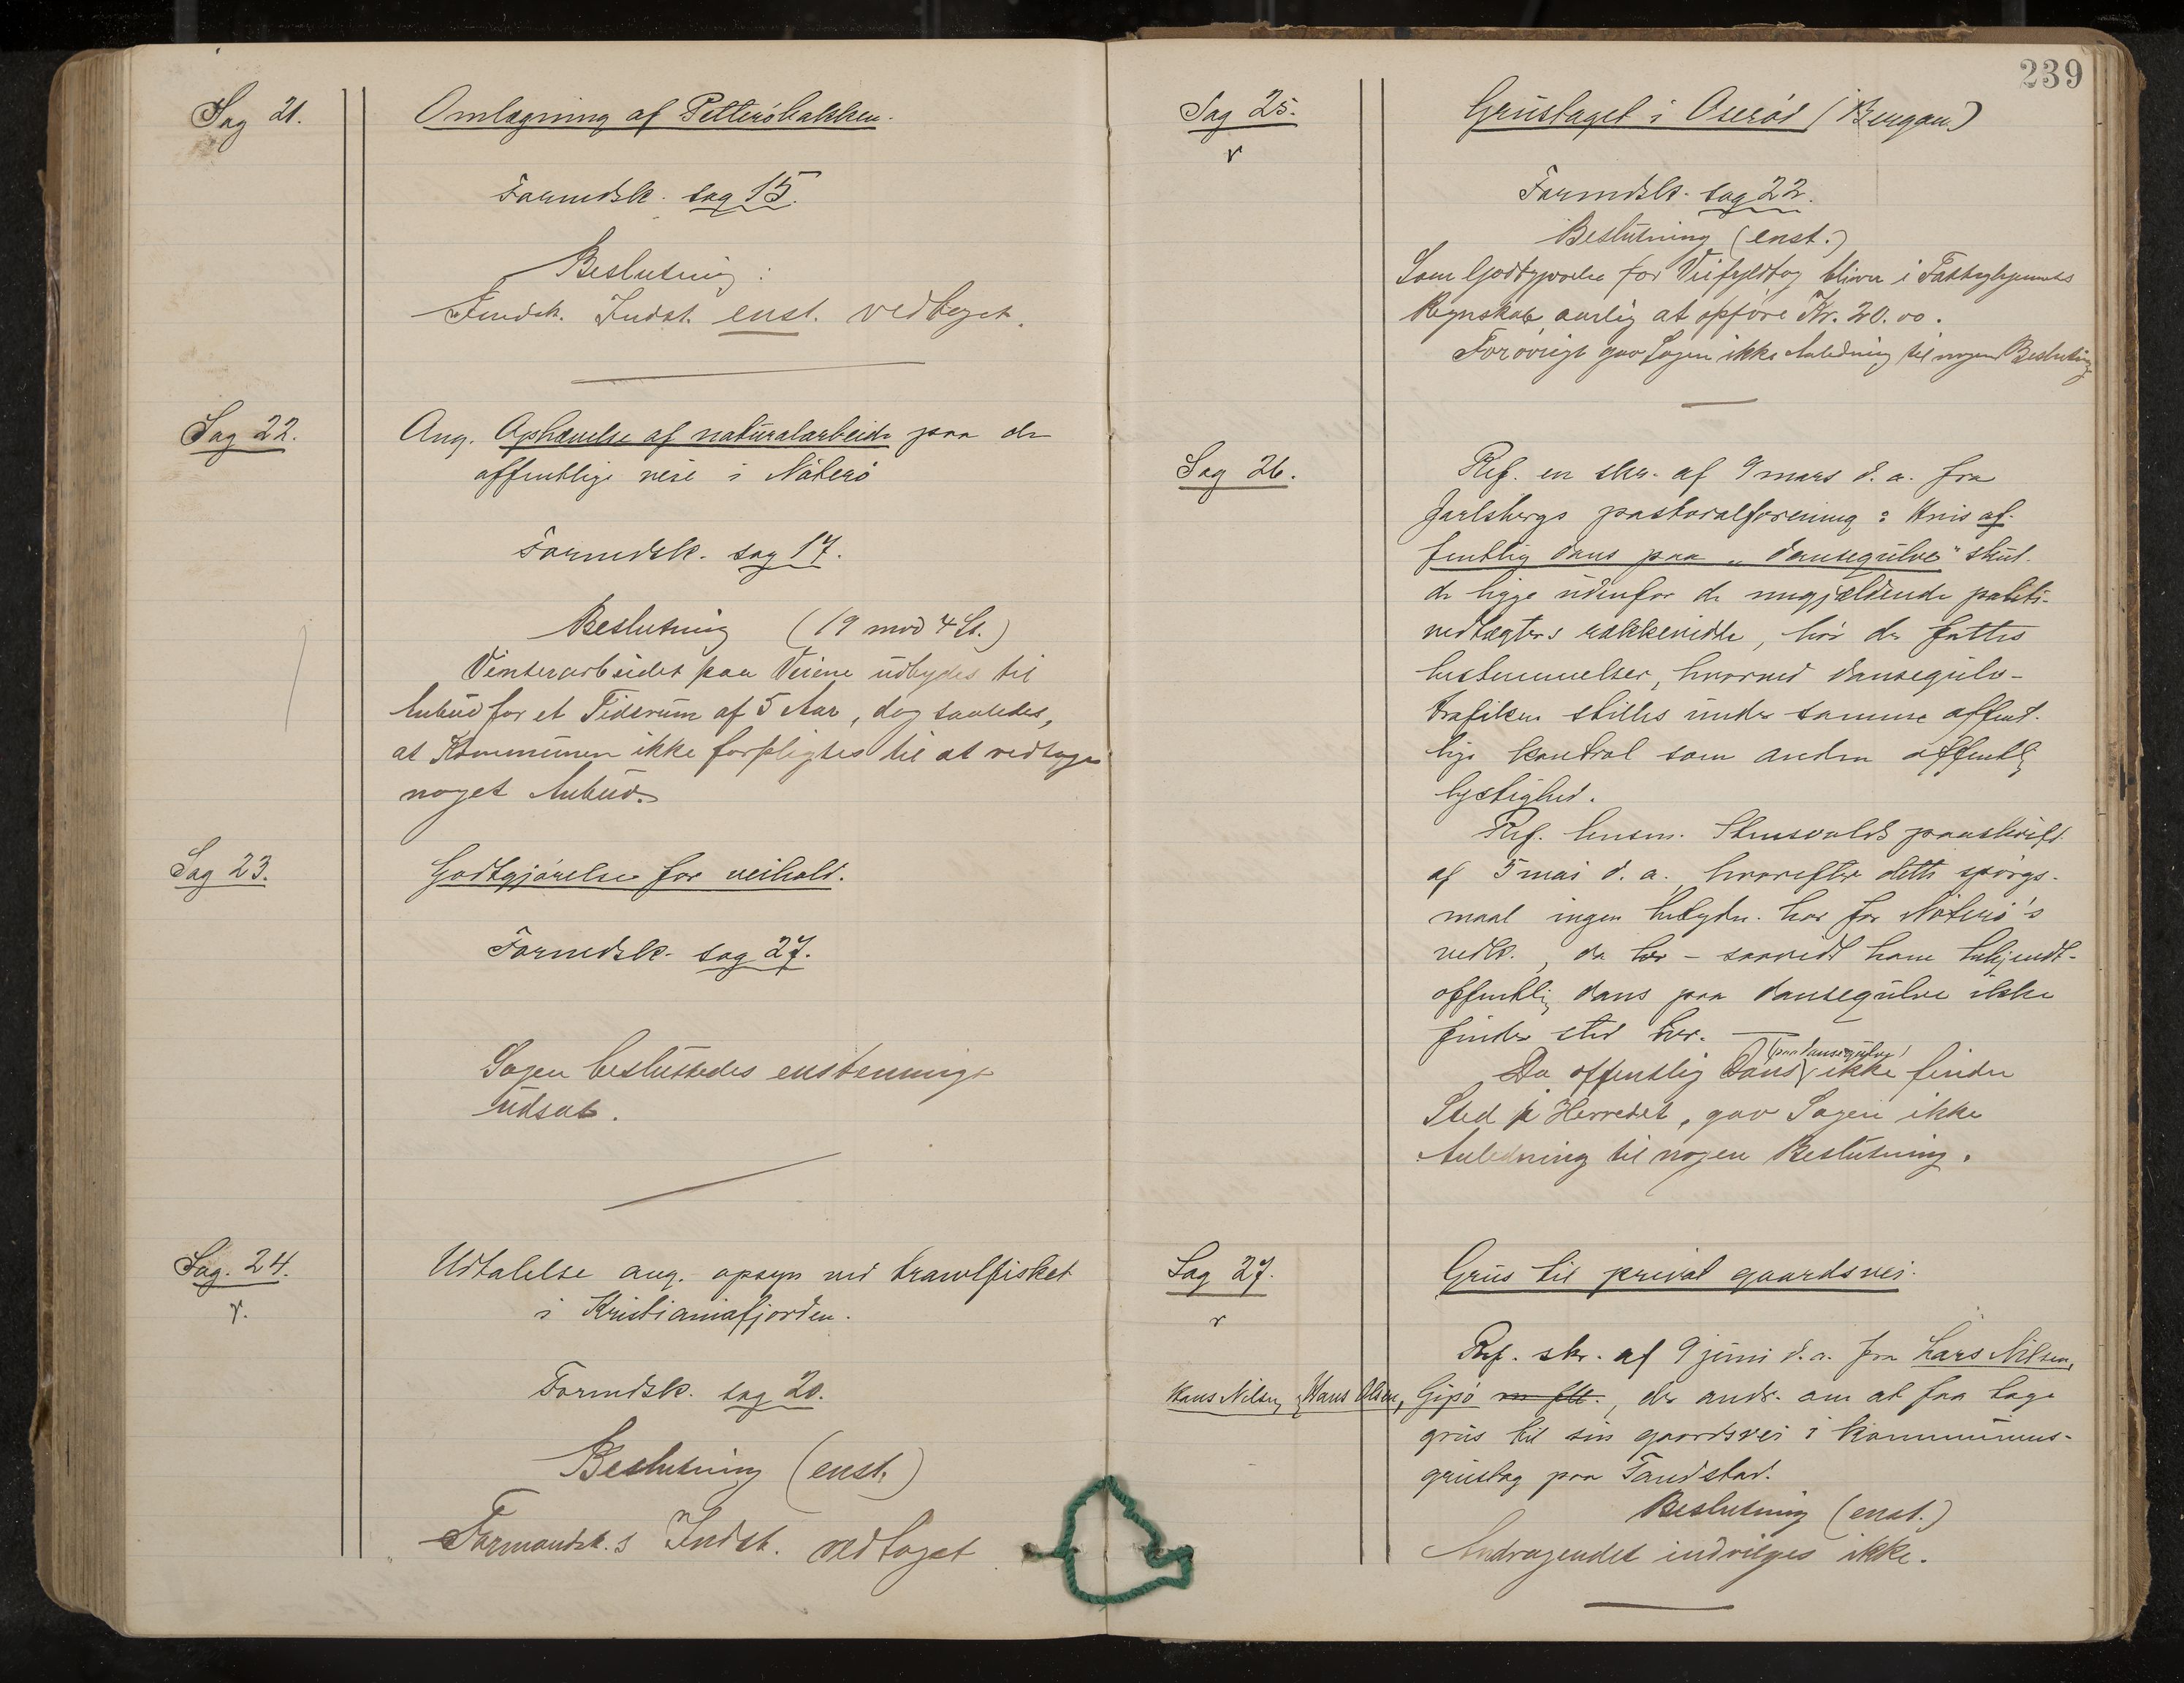 Sag 21.
Omlægning af Petterøbakken.
Formdsk. sag 15.
Beslutning:
Fmdsk. Indst. enst. vedtaget.
Sag 22.
Ang. Ophævelse af naturalarbeide paa de
offentlige veie i Nøterø
Formdsk. sag 17.
Beslutning (19 mod 4 St.)
Vinterarbeidet paa Veiene udbydes til
Anbud for et Tidsrum af 5 Aar, dog saaledes,
at Kommunen ikke forpligtes til at vedtage
noget Anbud.
Sag 23.
Godtgjørelse for veihold.
Formdsk. sag 27.
Sagen besluttedes enstemmigt
udsat.
Sag. 24.
v.
Udtalelse ang. opsyn ved trawlfisket
i Kristianiafjorden.
Formdsk. sag 20.
Beslutning (enst.)
Formandsk.s Indst. vedtaget
239
Sag 25.
v
Grustaget i Oserød (Bergan)
Formdsk. sag 22.
Beslutning (enst.)
Som Godtgjørelse for Veifyldtag bliver i Fattigvæsenets
Regnskab aarlig at opføre Kr. 20.00.
Forøvrigt gav Sagen ikke Anledning til nogen Beslutning
Sag 26.
Ref. en skr. af 9 mars d. a. fra
Jarlsbergs pastoralforening: Hvis of-
fentlig dans paa „dansegulve" skul-
de ligge udenfor de nugjældende politi-
vedtægters rækkevidde, bør der fattes
bestemmelser, hvorved dansegulv-
trafiken stilles under samme offent-
lige kontrol som anden offentlig
lystighed.
Ref. lensm. Stensvolds paaskrift
af 5 mai d. a. hvorefter dette spørgs-
maal ingen betydn. har for Nøterø's
vedk., da der – saavidt ham bekjendt –
offentlig dans paa dansegulve ikke
finder sted her. —
(paa dansegulve)
Da offentlig Dans ikke finder
Sted i Herredet, gav Sagen ikke
Anledning til nogen Beslutning.
Sag 27.
v
Grus til privat gaardsvei.
Ref. skr. af 9 juni d. a. fra Lars Nilsen,
Hans Nilsen, Hans Olsen, Gipø m fl., der andr. om at faa tage
grus til sin gaardsvei i kommunens
grustag paa Tandstad.
Beslutning (enst.)
Andragendet indvilges ikke.